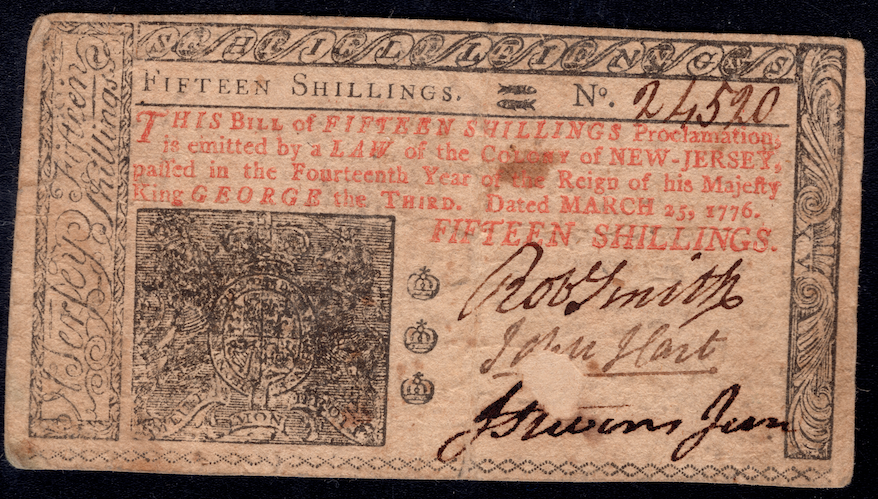 FIFTEEN SHILLINGS. No. 24520
THIS BILL of FIFTEEN SHILLINGS Proclamation,
is emitted by a LAW of the COLONY of NEW-JERSEY,
passed in the Fourteenth Year of the Reign of his Majesty
King GEORGE the THIRD. Dated MARCH 25, 1776.
FIFTEEN SHILLINGS.
Robt Smith
John Hart
JStevens Jun
Fifteen
Jersey Shillings
MON